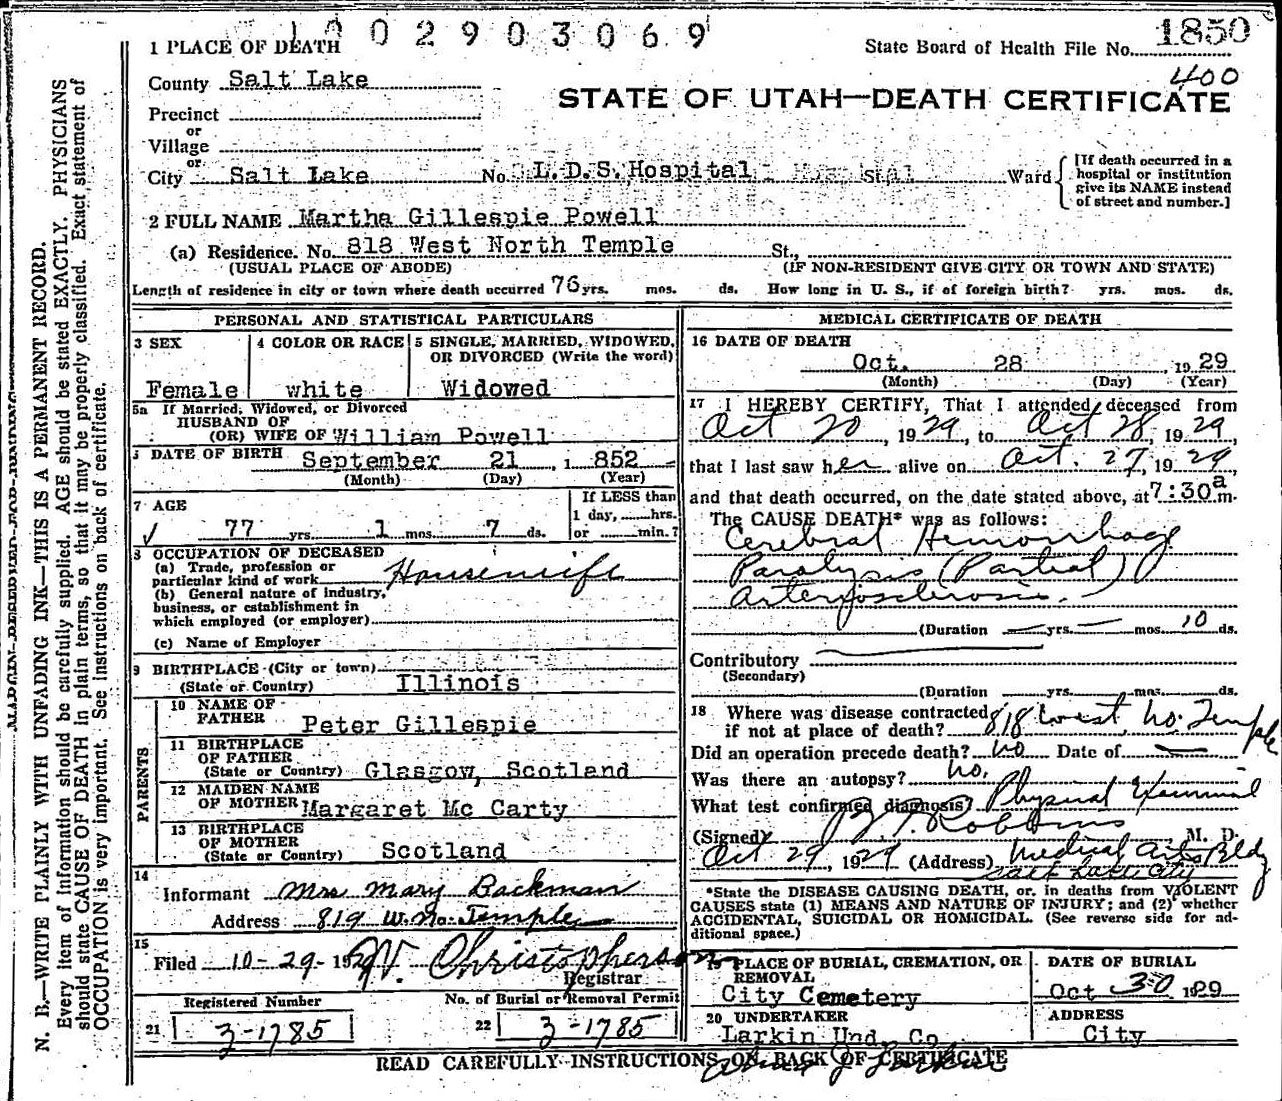 1002903069
1 PLACE OF DEATH
State Board of Health File No. 1850
400
County Salt Lake
STATE OF UTAH—DEATH CERTIFICATE
Precinct
or
Village
or
City Salt Lake No. L.D.S. Hospital St. Ward
[If death occurred in a
hospital or institution
give its NAME instead
of street and number.]
2 FULL NAME Martha Gillespie Powell
(a) Residence. No. 818 West North Temple St.,
(USUAL PLACE OF ABODE) (IF NON-RESIDENT GIVE CITY OR TOWN AND STATE)
Length of residence in city or town where death occurred 76 yrs. mos. ds. How long in U. S., if of foreign birth? yrs. mos. ds.
PERSONAL AND STATISTICAL PARTICULARS
3 SEX
Female
4 COLOR OR RACE
white
5 SINGLE, MARRIED, WIDOWED,
OR DIVORCED (Write the word)
Widowed
5a If Married, Widowed, or Divorced
HUSBAND OF
(OR) WIFE OF William Powell
DATE OF BIRTH September 21, 1852
(Month) (Day) (Year)
7 AGE
77 yrs. 1 mos. 7 ds.
If LESS than
1 day, hrs.
or min.?
8 OCCUPATION OF DECEASED
(a) Trade, profession or
particular kind of work Housewife
(b) General nature of industry,
business, or establishment in
which employed (or employer)
(c) Name of Employer
9 BIRTHPLACE (City or town)
(State or Country) Illinois
PARENTS
10 NAME OF
FATHER Peter Gillespie
11 BIRTHPLACE
OF FATHER
(State or Country) Glasgow, Scotland
12 MAIDEN NAME
OF MOTHER Margaret Mc Carty
13 BIRTHPLACE
OF MOTHER
(State or Country) Scotland
14
Informant Mrs Mary Backman
Address 819 W. No. Temple
15
Filed 10-29-1929 Christopherson
Registrar
Registered Number
21 3-1785
No. of Burial or Removal Permit
22 3-1785
MEDICAL CERTIFICATE OF DEATH
16 DATE OF DEATH
Oct. 28, 1929
(Month) (Day) (Year)
17 I HEREBY CERTIFY, That I attended deceased from
Oct 20, 1929, to Oct 28, 1929,
that I last saw her alive on Oct. 27, 1929
and that death occurred, on the date stated above, at 7:30 a m.
The CAUSE DEATH* was as follows:
Cerebral Hemorrhage
Paralysis (Partial)
Arteriosclerosis.
(Duration — yrs. — mos. 10 ds.
Contributory
(Secondary)
(Duration yrs. mos. ds.
18 Where was disease contracted
if not at place of death? 818 West No. Temple
Did an operation precede death? no Date of —
Was there an autopsy? no.
What test confirmed diagnosis? Physical
(Signed) Robbins M. D.
Oct 29, 1929 (Address) Medical Arts Bldg
Salt Lake City
*State the DISEASE CAUSING DEATH, or, in deaths from VIOLENT
CAUSES state (1) MEANS AND NATURE OF INJURY; and (2) whether
ACCIDENTAL, SUICIDAL OR HOMICIDAL. (See reverse side for ad-
ditional space.)
19 PLACE OF BURIAL, CREMATION, OR
REMOVAL
City Cemetery
DATE OF BURIAL
Oct 30 1929
20 UNDERTAKER
Larkin Und. Co
ADDRESS
City
READ CAREFULLY INSTRUCTIONS ON BACK OF CERTIFICATE
MARGIN RESERVED FOR BINDING
N. B.—WRITE PLAINLY WITH UNFADING INK—THIS IS A PERMANENT RECORD.
Every item of information should be carefully supplied. AGE should be stated EXACTLY. PHYSICIANS
should state CAUSE OF DEATH in plain terms, so that it may be properly classified. Exact statement of
OCCUPATION is very important. See instructions on back of certificate.